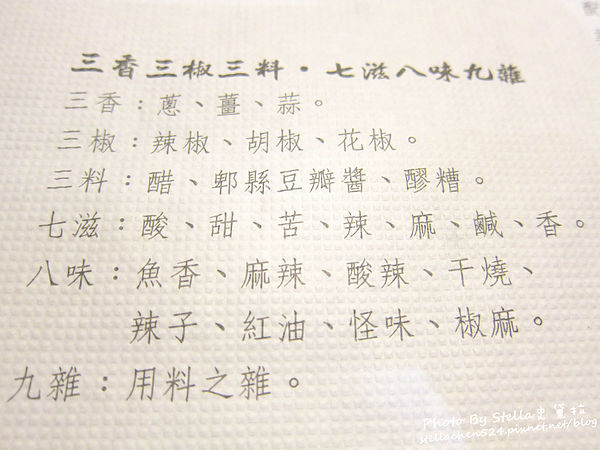 三香三椒三料·七滋八味九雜
三香：蔥、薑、蒜。
三椒：辣椒、胡椒、花椒。
三料：醋、郫縣豆瓣醬、醪糟。
七滋：酸、甜、苦、辣、麻、鹹、香。
八味：魚香、麻辣、酸辣、干燒、
辣子、紅油、怪味、椒麻。
九雜：用料之雜。
Photo By Stella史黛拉
stellachen524.pixnet.net/blog